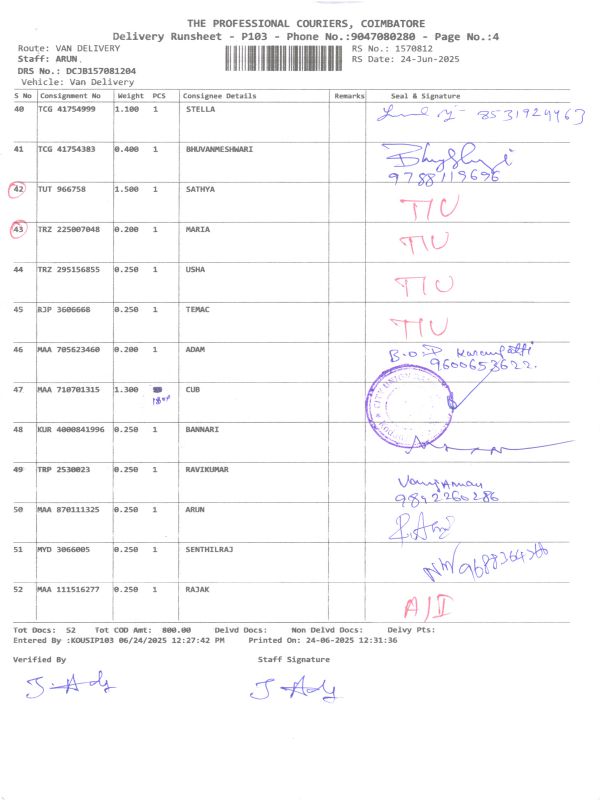 THE PROFESSIONAL COURIERS, COIMBATORE
Delivery Runsheet - P103 - Phone No.:9047080280 - Page No.:4
Route: VAN DELIVERY RS No.: 1570812
Staff: ARUN. RS Date: 24-Jun-2025
DRS No.: DCJB157081204
Vehicle: Van Delivery
S No Consignment No Weight PCS Consignee Details Remarks Seal & Signature
40 TCG 41754999 1.100 1 STELLA 8531924463
41 TCG 41754383 0.400 1 BHUVANMESHWARI
9788119696
42 TUT 966758 1.500 1 SATHYA T/U
43 TRZ 225007048 0.200 1 MARIA T/U
44 TRZ 295156855 0.250 1 USHA T/U
45 RJP 3606668 0.250 1 TEMAC T/U
46 MAA 705623460 0.200 1 ADAM B.O.D
9600653622.
47 MAA 710701315 1.300 CUB CITY UNION
48 KUR 4000841996 0.250 1 BANNARI
49 TRP 2530023 0.250 1 RAVIKUMAR
9842260286
50 MAA 870111325 0.250 1 ARUN
51 MYD 3066005 0.250 1 SENTHILRAJ
52 MAA 111516277 0.250 1 RAJAK A/I
Tot Docs: 52 Tot COD Amt: 800.00 Delvd Docs: Non Delvd Docs: Delvy Pts:
Entered By :KOUSIP103 06/24/2025 12:27:42 PM Printed On: 24-06-2025 12:31:36
Verified By Staff Signature